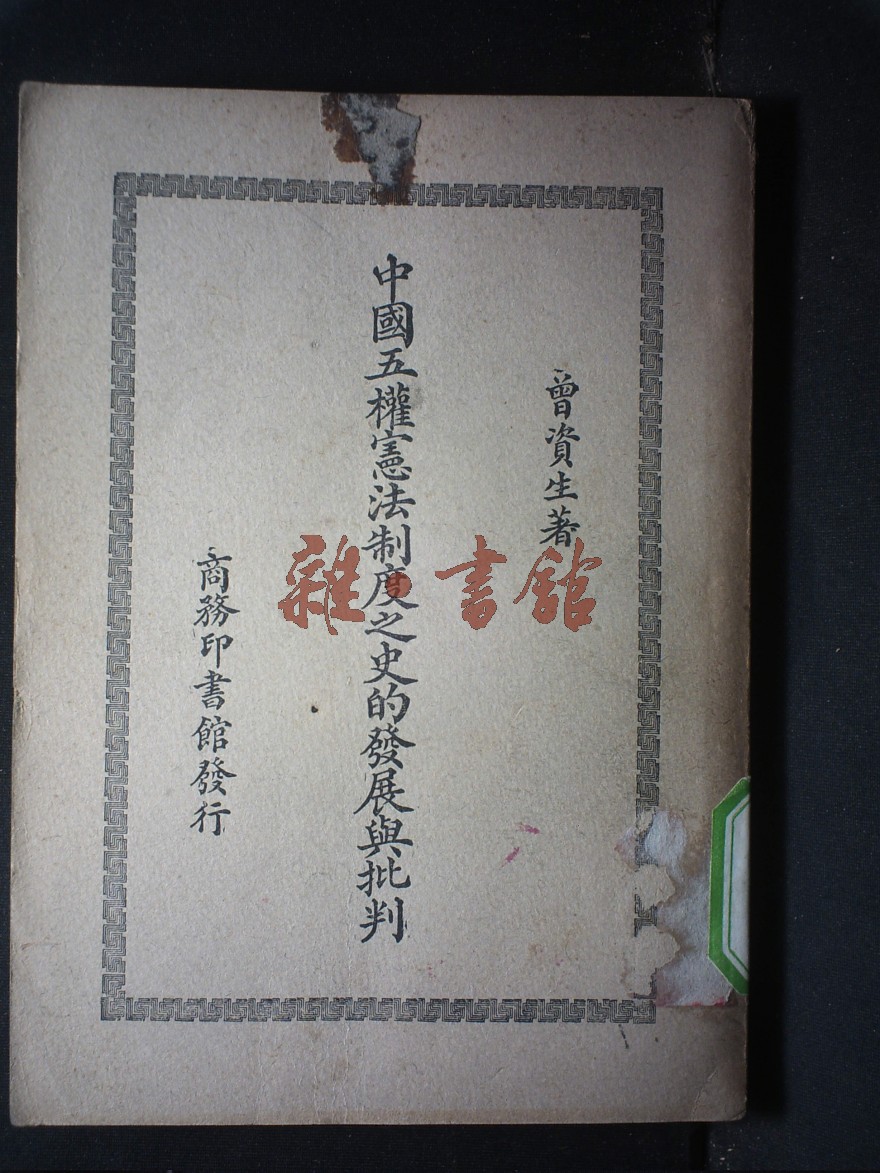 曾資生著
中國五權憲法制度之史的發展與批判
商務印書館發行
雜·書館